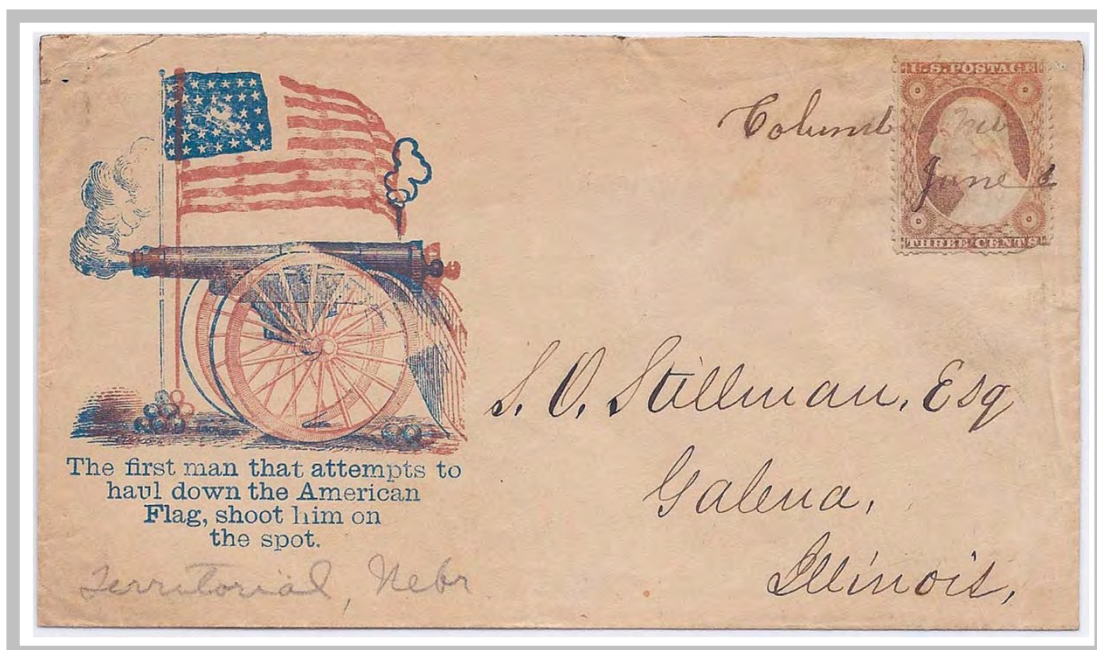 U.S. POSTAGE
Columb
June
THREE CENTS
S. O. Stillman, Esq
Galena,
Illinois,
The first man that attempts to
haul down the American
Flag, shoot him on
the spot.
Territorial, Nebr